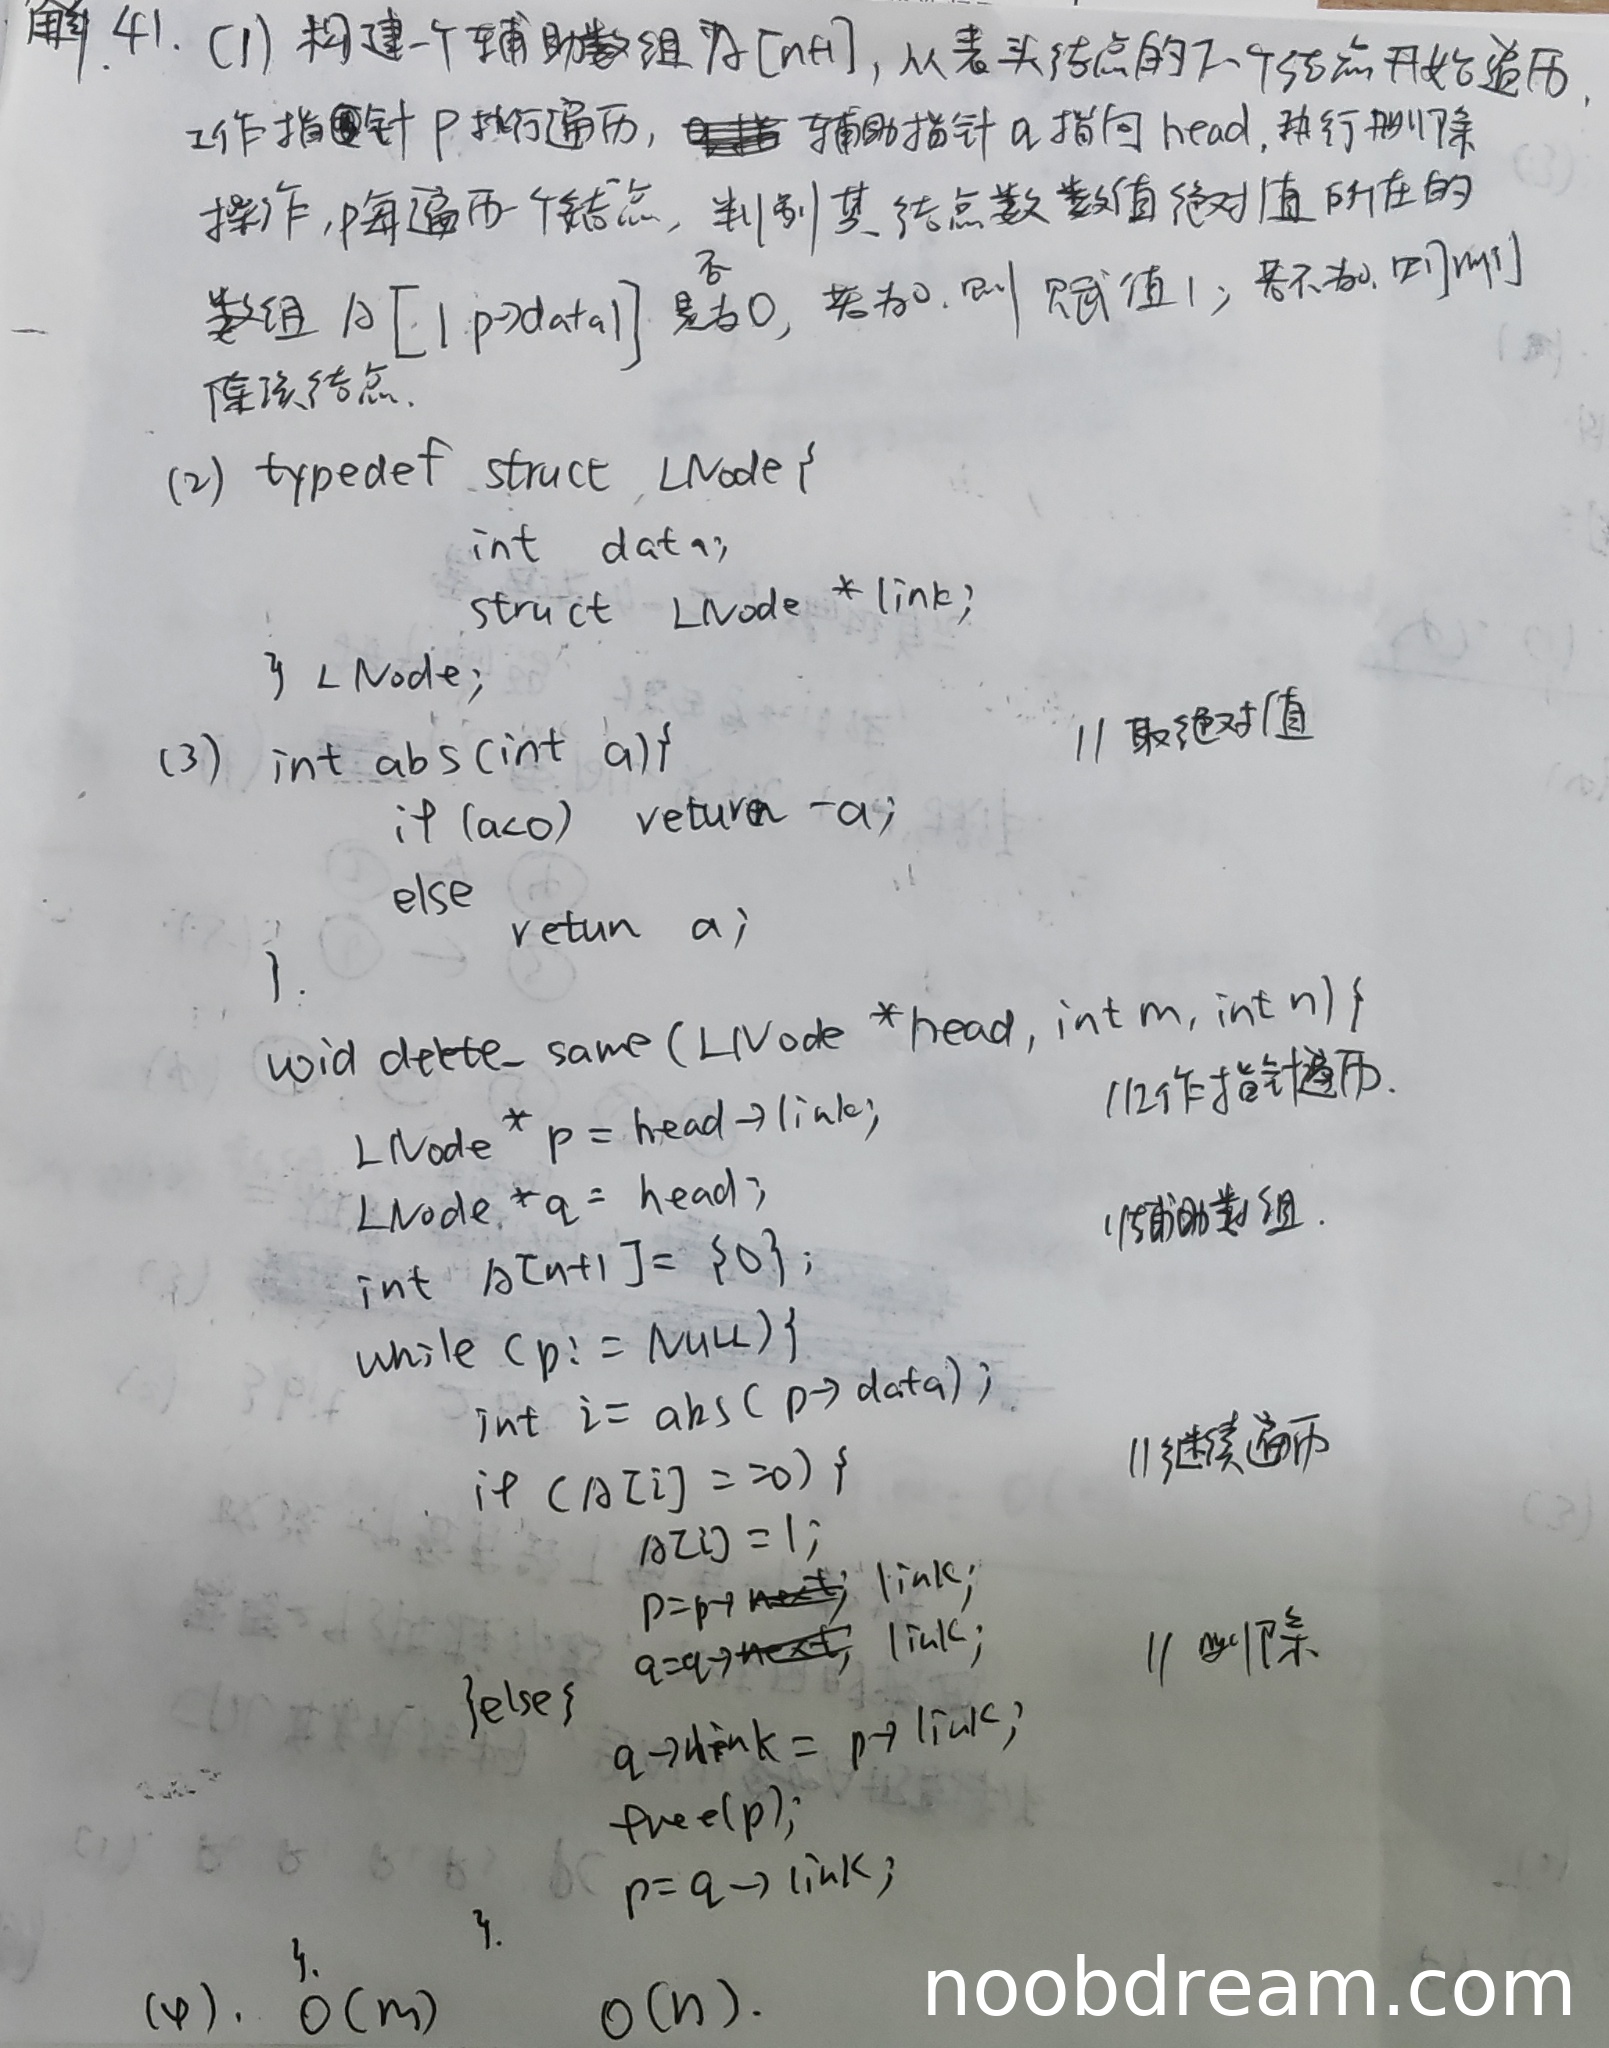 解.41. (1) 构建一个辅助数组 A[n+1], 从表头结点的下一个结点开始遍历,
工作指针 p 执行遍历, 辅助指针 q 指向 head, 执行删除
操作, p每遍历一个结点, 判别其结点数数值绝对值所在的
数组 A[|p->data|] 是否为0, 若为0. 则赋值1; 若不为0. 则删
除该结点.
(2) typedef struct LNode{
int data;
struct LNode *link;
} LNode;
(3) int abs(int a){ //取绝对值
if (a<0) return -a;
else
retun a;
}.
void delete_same(LNode *head, int m, int n){
LNode *p = head->link; //工作指针遍历.
LNode *q = head;
int A[n+1] = {0}; //辅助数组.
while (p != NULL){
int i = abs(p->data);
if (A[i] == 0){ //继续遍历
A[i] = 1;
p=p->link;
q=q->link;
}else{ //删除
q->link = p->link;
free(p);
p=q->link;
}.
}.
(4). O(m) O(n).
noobdream.com